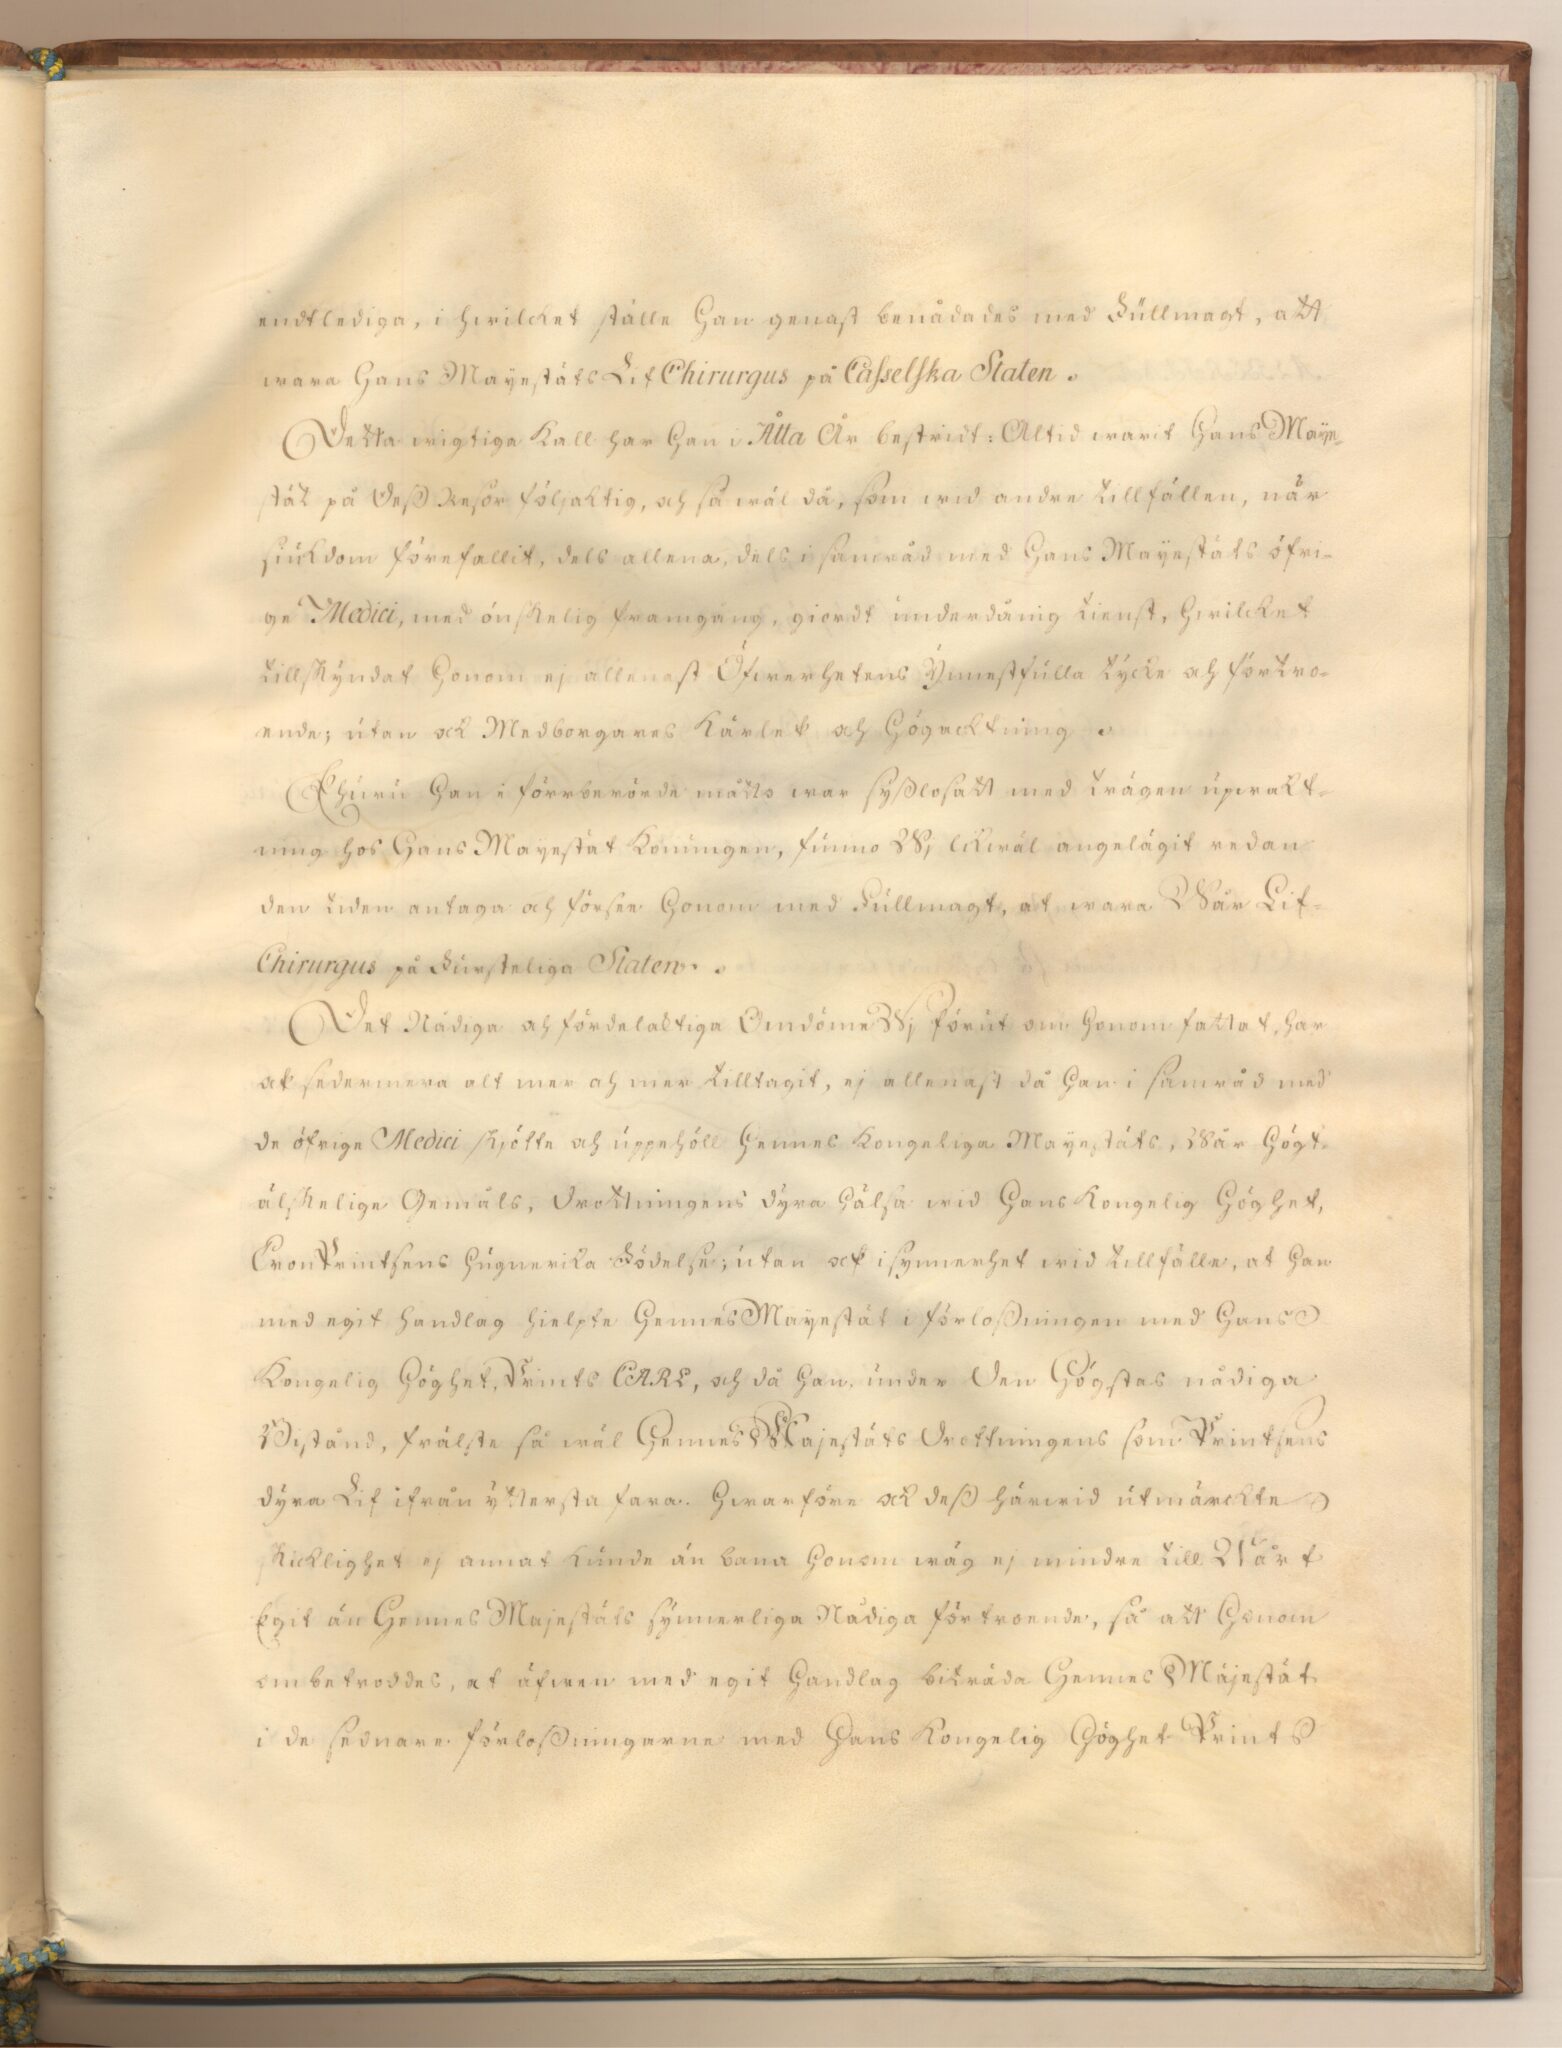 endtlediga, i hwilcket ställe Han genast benådades med Füllmagt, att
wara Hans Mayestäts Lif Chirurgus på Casselska Staten.
Detta wigtiga Kall har Han i Åtta År bestridt: Altid warit Hans Maye-
stät på Deß Resor följacktig, och så wäl då, som wid andre tillfällen, när
siückdom förefallit, dels allena, dels i samråd med Hans Mayestäts öfri-
ge Medici, med önskelig framgång, giordt ünderdånig tienst, Hwilcket
tillskÿndat Honom ej allenast Öfwerhetens Ynnestfülla tÿcke och förtro-
ende; ütan ock Medborgares Kärlek och Högacktning.
Ehürü Han i förrberörde måtto war sÿßlosatt med trägen üpwakt-
ning hos Hans Mayestät Konüngen, fünno Wj lickwäl angelägit redan
den tiden antaga och förse Honom med Füllmagt, at wara Wår Lif-
Chirurgus på Fürsteliga Staten.
Det Nådiga och fördelaktiga Omdöme Wj förüt om Honom fattat, har
ock sedermera alt mer och mer tilltagit, ej allenast då Han i samråd med
de öfrige Medici skjötte och üppehöll Hennes Kongeliga Mayestäts, Wår Högt-
älskelige Gemåls, Drottningens dÿra Hälsa wid Hans Kongelig Höghet,
CronPrintsens Hügnerika Födelse; ütan ock isynnerhet wid tillfälle, at Han
med egit handlag hielpte Hennes Mayestät i förloßningen med Hans
Kongelig Höghet, Prints CARL, och då Han, ünder Den Högstas nådiga
Bistånd, frälste så wäl Hennes Majestäts Drottningens som Printsens
dÿra Lif ifrån ÿttersta fara. Hwarföre ock deß härwid ütmärckte
skicklighet ej annat künde än bana Honom wäg ej mindre till Wårt
Egit än Hennes Majestäts sÿnnerliga Nådiga förtroende, så att Honom
ombetroddes, at äfwen med egit Handlag biträda Hennes Majestät
i de sednare förloßningarne med Hans Kongelig Höghet Prints